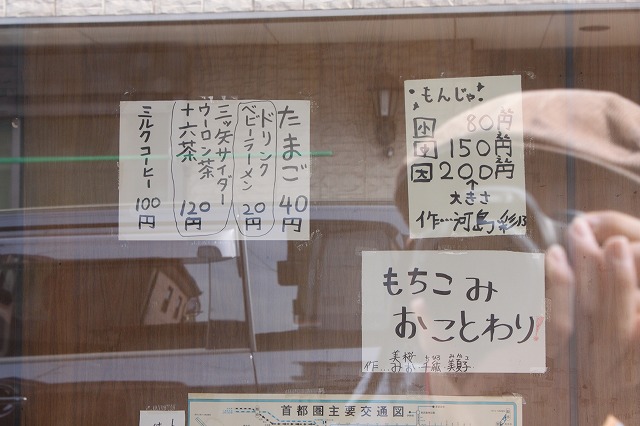 たまご 40円
ドリンク
ベビーラーメン 20円
三ッ矢サイダー
ウーロン茶
十六茶 120円
ミルクコーヒー 100円
もんじゃ
小 80円
中 150円
大 200円
↑
大きさ
作…河島彩
もちこみ
おことわり!
美桜 ちひろ みかこ
作…みお・千紘・美夏子
首都圏主要交通図